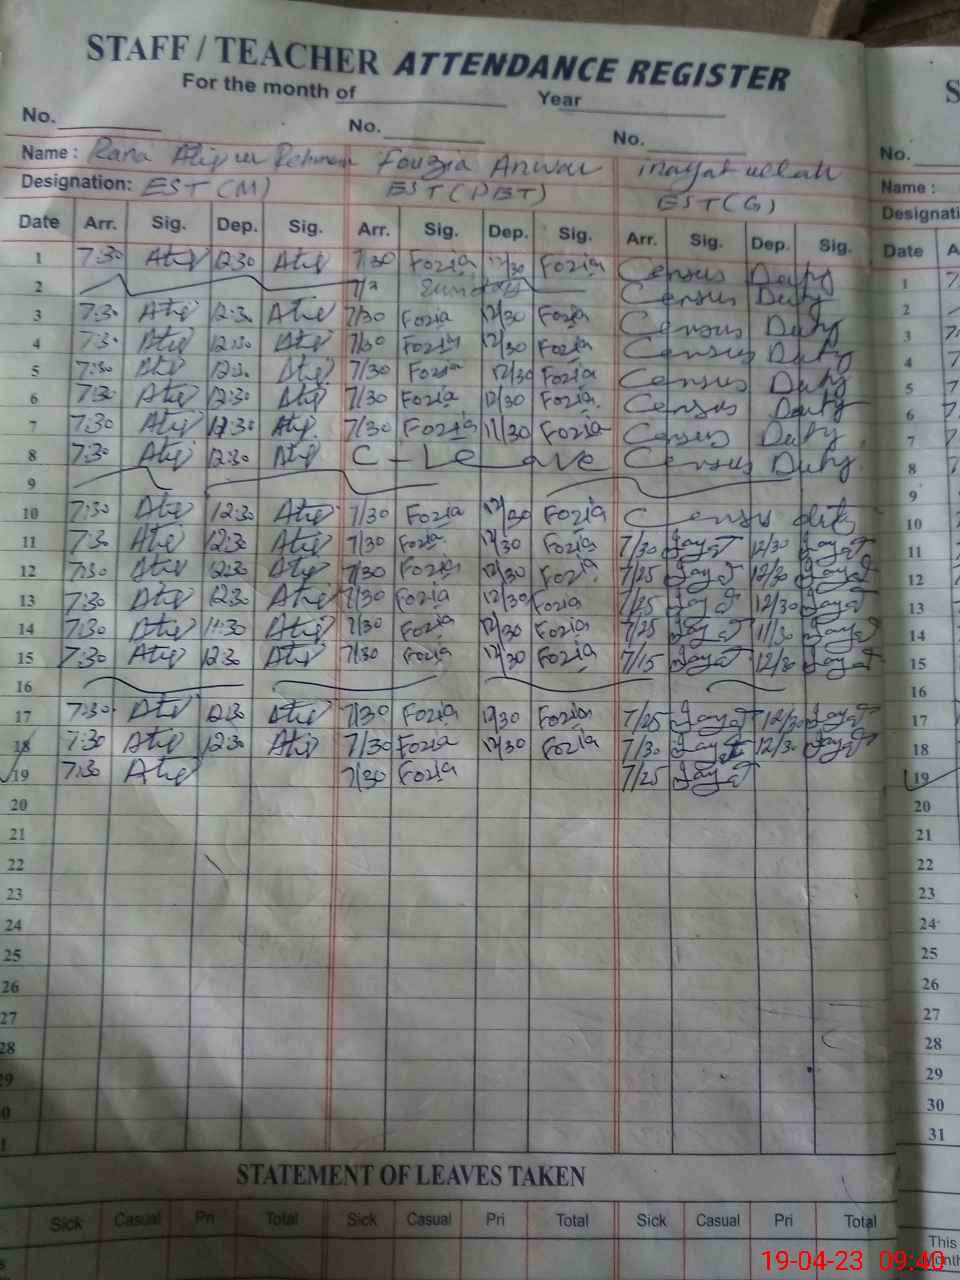 STAFF / TEACHER ATTENDANCE REGISTER
For the month of Year
No. No. No. No.
Name : Rana Fouzia Anwar inayat ullah Name :
Designation: EST (M) EST (PBT) EST (G)
Date Arr. Sig. Dep. Sig. Arr. Sig. Dep. Sig. Arr. Sig. Dep. Sig. Date
1 7:30 Atiq 12:30 Atiq 7/30 Fozia 12/30 Fozia Census Duty 1
2 Sunday Census Duty 2
3 7:30 Atiq 12:30 Atiq 7/30 Fozia 12/30 Fozia Census Duty 3
4 7:30 Atiq 12:30 Atiq 7/30 Fozia 12/30 Fozia Census Duty 4
5 7:30 Atiq 12:30 Atiq 7/30 Fozia 12/30 Fozia Census Duty 5
6 7:30 Atiq 12:30 Atiq 7/30 Fozia 12/30 Fozia Census Duty 6
7 7:30 Atiq 11:30 Atiq 7/30 Fozia 11/30 Fozia Census Duty 7
8 7:30 Atiq 12:30 Atiq C - Leave Census Duty 8
9 9
10 7:30 Atiq 12:30 Atiq 7/30 Fozia 12/30 Fozia Census duty 10
11 7:30 Atiq 12:30 Atiq 7/30 Fozia 12/30 Fozia 7/30 12/30 11
12 7:30 Atiq 12:30 Atiq 7/30 Fozia 12/30 Fozia 7/25 12/30 12
13 7:30 Atiq 12:30 Atiq 7/30 Fozia 12/30 Fozia 7/25 12/30 13
14 7:30 Atiq 11:30 Atiq 7/30 Fozia 12/30 Fozia 7/25 11/30 14
15 7:30 Atiq 12:30 Atiq 7/30 Fozia 12/30 Fozia 7/15 12/30 15
16 16
17 7:30 Atiq 12:30 Atiq 7/30 Fozia 12/30 Fozia 7/25 12/30 17
18 7:30 Atiq 12:30 Atiq 7/30 Fozia 12/30 Fozia 7/30 12/30 18
19 7:30 Atiq 7/30 Fozia 7/25 19
20 20
21 21
22 22
23 23
24 24
25 25
26 26
27 27
28 28
29 29
30
31
STATEMENT OF LEAVES TAKEN
Sick Casual Pri Total Sick Casual Pri Total Sick Casual Pri Total
This
19-04-23 09:40